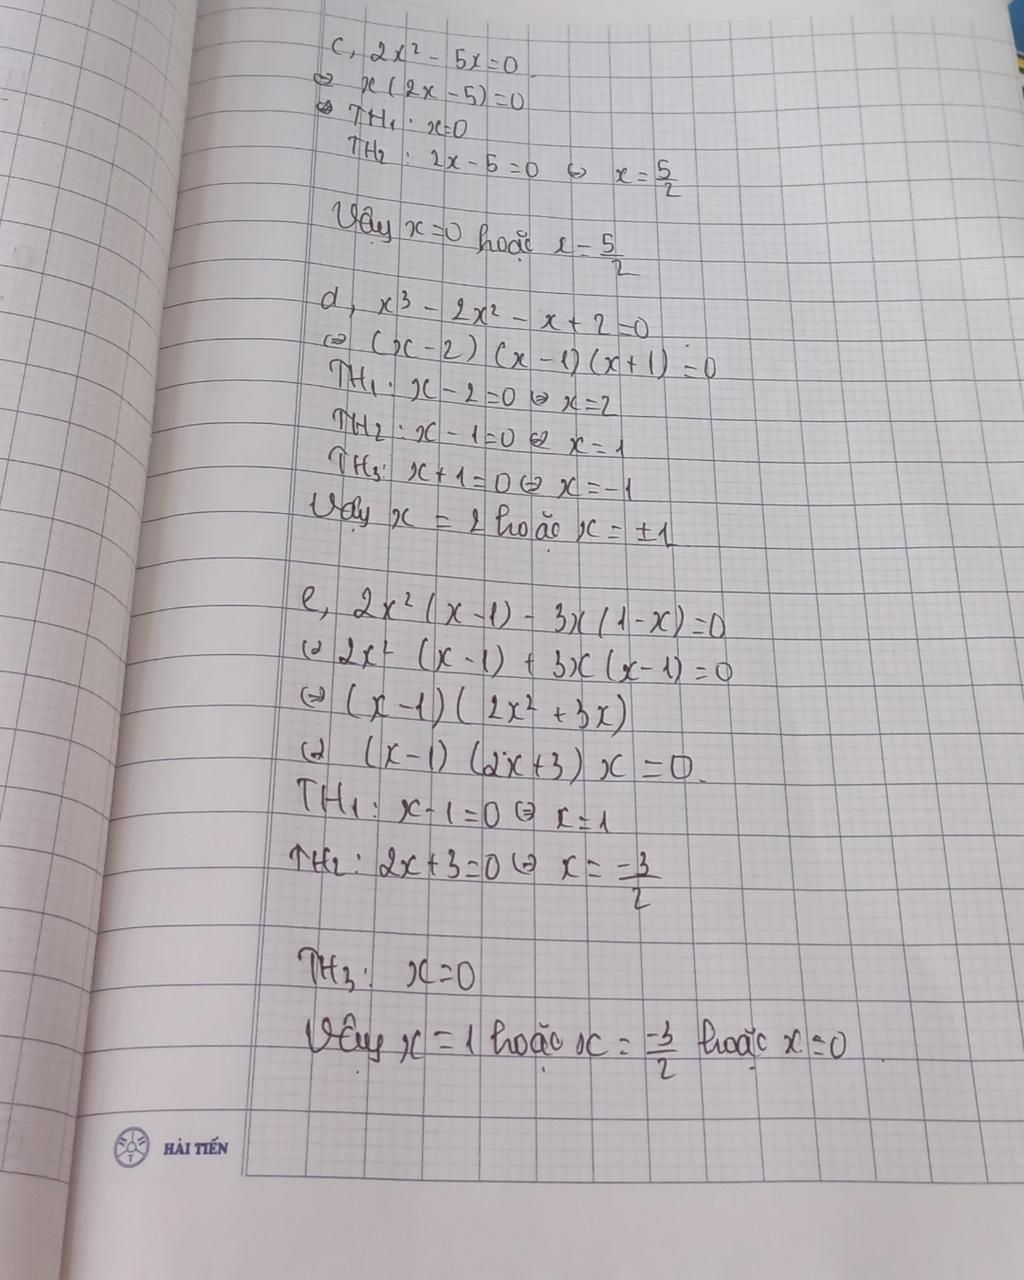 c, 2x² - 5x = 0
⇔ x(2x - 5) = 0
⇔ TH₁: x = 0
TH₂: 2x - 5 = 0 ⇔ x = 5/2
Vậy x = 0 hoặc x = 5/2
d, x³ - 2x² - x + 2 = 0
⇔ (x - 2)(x - 1)(x + 1) = 0
TH₁: x - 2 = 0 ⇔ x = 2
TH₂: x - 1 = 0 ⇔ x = 1
TH₃: x + 1 = 0 ⇔ x = -1
Vậy x = 2 hoặc x = ±1
e, 2x²(x - 1) - 3x(1 - x) = 0
⇔ 2x²(x - 1) + 3x(x - 1) = 0
⇔ (x - 1)(2x² + 3x)
⇔ (x - 1)(2x + 3)x = 0.
TH₁: x - 1 = 0 ⇔ x = 1
TH₂: 2x + 3 = 0 ⇔ x = -3/2
TH₃: x = 0
Vậy x = 1 hoặc x = -3/2 hoặc x = 0.
HẢI TIẾN